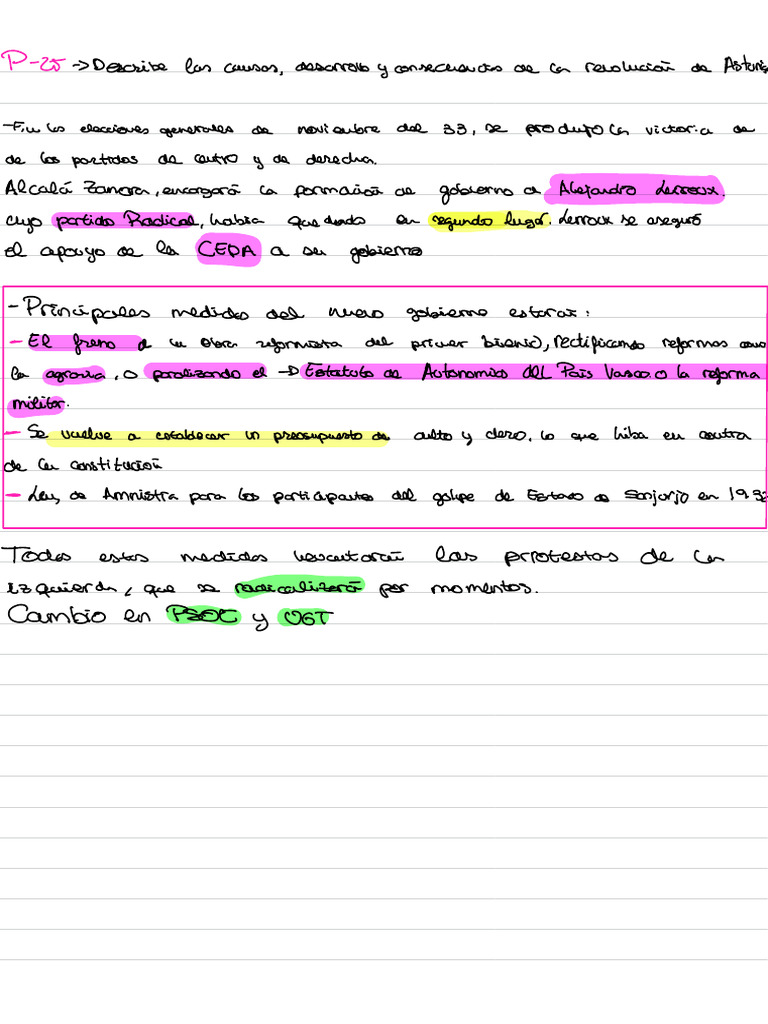 P-25 → Describe las causas, desarrollo y consecuencias de la revolución de Asturias
- En las elecciones generales de noviembre del 33, se produjo la victoria de
de los partidos de centro y de derecha.
Alcalá Zamora, encargará la formación de gobierno a Alejandro Lerroux.
cuyo partido Radical, había quedando en segundo lugar. Lerroux se aseguró
el apoyo de la CEDA a su gobierno
- Principales medidas del nuevo gobierno estarán:
- El freno a la obra reformista del primer bienio, rectificando reformas como
la agraria, o paralizando el → Estatuto de Autonomía del País Vasco o la reforma
militar.
- Se vuelve a establecer un presupuesto de culto y clero, lo que hiba en contra
de la constitución
- Ley de Amnistra para los participantes del golpe de Estado de Sanjurjo en 1932
Todas estas medidas la protestas de la
izquierda, que se radicalizará por momentos.
Cambio en PSOE y UGT